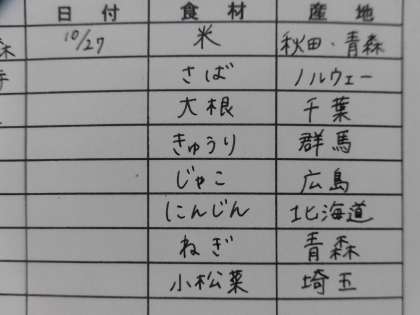 日付 食材 産地
10/27 米 秋田・青森
さば ノルウェー
大根 千葉
きゅうり 群馬
じゃこ 広島
にんじん 北海道
ねぎ 青森
小松菜 埼玉